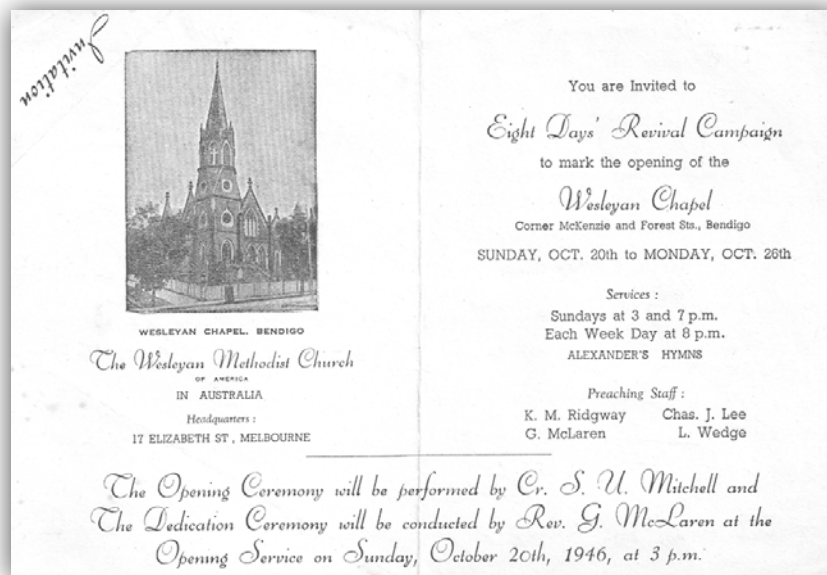 Invitation
WESLEYAN CHAPEL, BENDIGO
The Wesleyan Methodist Church
OF AMERICA
IN AUSTRALIA
Headquarters :
17 ELIZABETH ST, MELBOURNE
You are Invited to
Eight Days' Revival Campaign
to mark the opening of the
Wesleyan Chapel
Corner McKenzie and Forest Sts., Bendigo
SUNDAY, OCT. 20th to MONDAY, OCT. 26th
Services :
Sundays at 3 and 7 p.m.
Each Week Day at 8 p.m.
ALEXANDER'S HYMNS
Preaching Staff :
K. M. Ridgway Chas. J. Lee
G. McLaren L. Wedge
The Opening Ceremony will be performed by Cr. S. U. Mitchell and
The Dedication Ceremony will be conducted by Rev. G. McLaren at the
Opening Service on Sunday, October 20th, 1946, at 3 p.m.